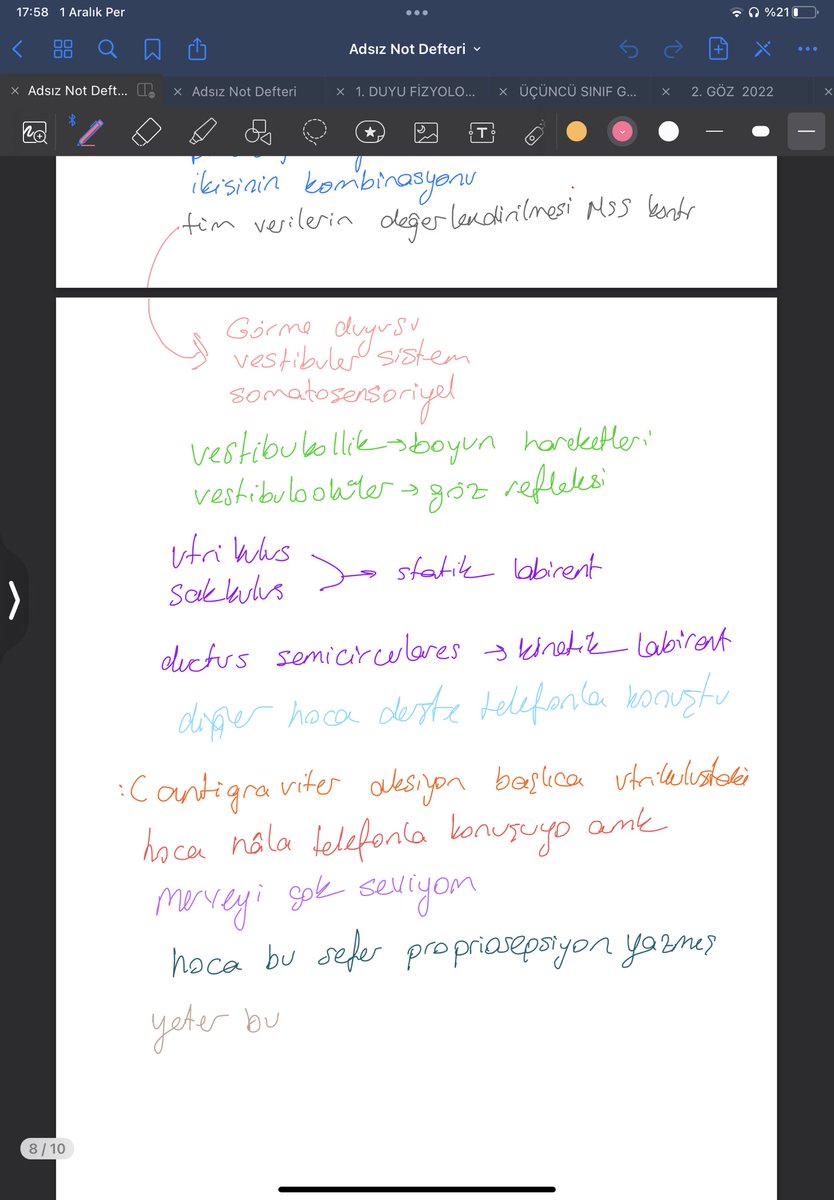 17:58 1 Aralık Per
%21
Adsız Not Defteri
Adsız Not Deft...
Adsız Not Defteri
1. DUYU FİZYOLO...
ÜÇÜNCÜ SINIF G...
2. GÖZ 2022
ikisinin kombinasyonu
tüm verilerin değerlendirilmesi MSS kontr
Görme duyusu
vestibuler sistem
somatosensoriyel
vestibukollik → boyun hareketleri
vestibulooküler → göz refleksi
utrikulus
sakkulus
statik labirent
ductus semicirculares → kinetik labirent
diğer hoca derste telefonla konuştu
:( antigraviter aksiyon başlıca utrikulustaki
hoca nâla telefonla konuşuyo amk
merveyi çok seviyom
hoca bu sefer propriosepsiyon yazmış
yeter bu
8 / 10